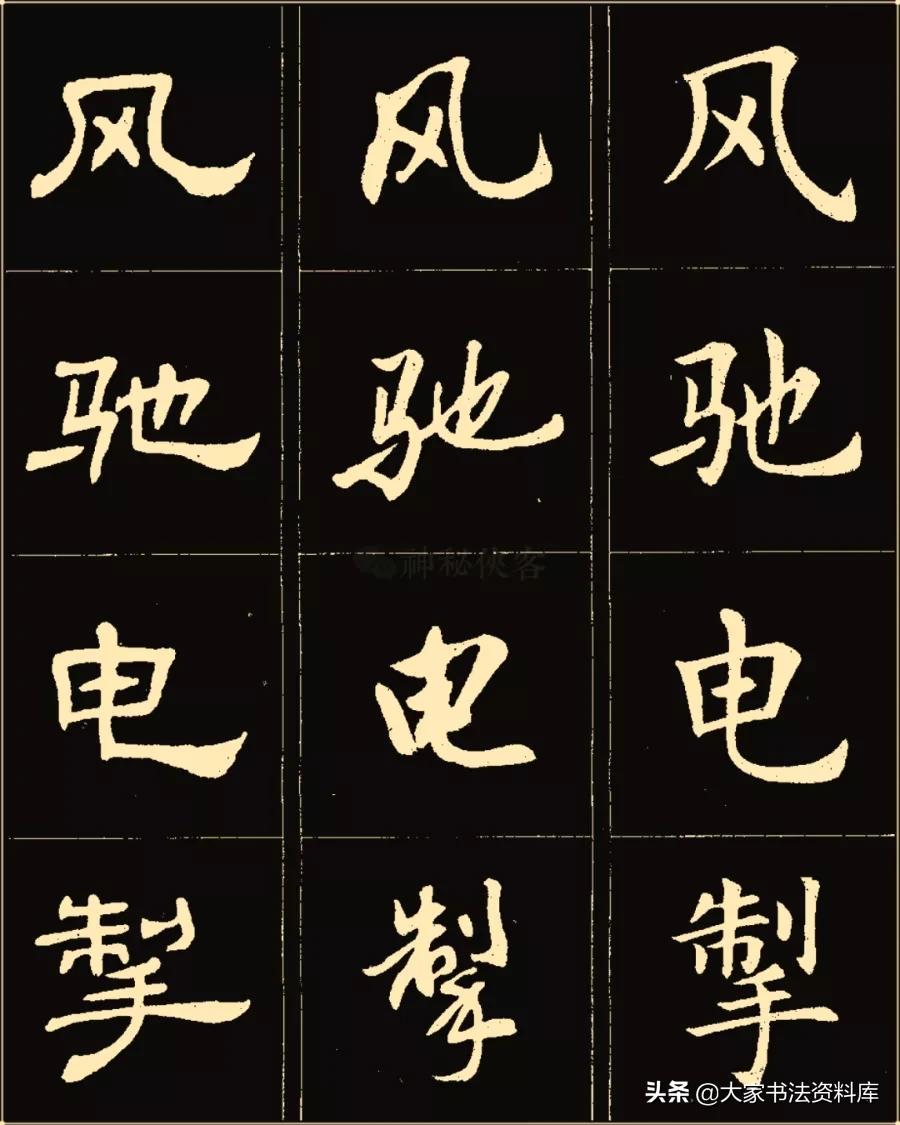 风 风 风
驰 驰 驰
神秘侠客
电 电 电
掣 掣 掣
头条 @大家书法资料库